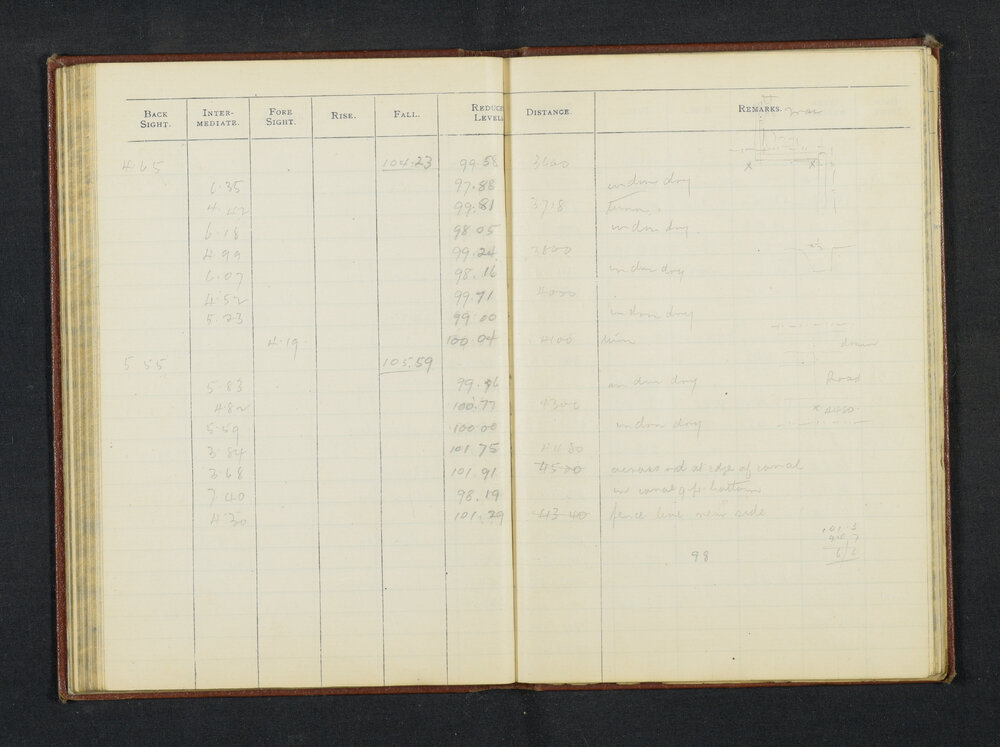 BACK SIGHT. INTER-MEDIATE. FORE SIGHT. RISE. FALL. REDUCE LEVEL DISTANCE. REMARKS.
4.65 104.23 99.58 3600
6.35 97.88 in drn dry
4.42 99.81 3718
6.18 98.05 in drn dry
4.99 99.24 3800
6.07 98.16 in drn dry
4.52 99.71 4000
5.23 99.00 in drn dry
4.19 100.04 4100
drain
5.55 105.59
5.83 99.76 in drn dry Road
4.82 100.77 4300
5.59 100.00 in drn dry
3.84 101.75 4480
3.68 101.91 4500 across rd at edge of canal
7.40 98.19 in canal bottom
4.30 101.29 4340 fence line near side
98